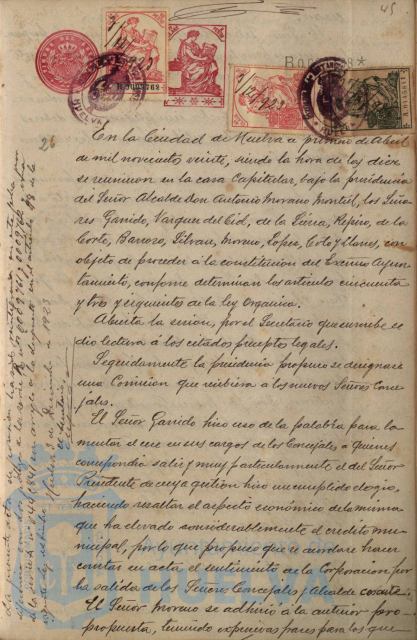 45
1/12/923
R0003762
1/12/923
26
En la Ciudad de Huelva a primero de Abril
de mil novecientos veinte, siendo la hora de las diez
se reunieron en la casa Capitular, bajo la presidencia
del Señor Alcalde Don Antonio Morano Montiel, los Seño
res Garrido, Vazquez del Cid, de la Sierra, Repiso, de la
Corte, Barroso, Morano, Lopez, y con
objeto de proceder á la constitucion del Excmo Ayun
tamiento, conforme determinan los articulos cincuenta
y tres y siguientes de la ley Organica.
Abierta la sesion, por el Secretario que suscribe se
dio lectura á los citados preceptos legales.
Seguidamente la presidencia propuso se designara
una Comision que recibiera á los nuevos Señores Conce
jales.
El Señor Garrido hizo uso de la palabra para la
mentar el cese en sus cargos de los Concejales á quienes
correspondia salir y muy particularmente el del Señor
Presidente de cuya gestion hizo un cumplido elogio,
haciendo resaltar el aspecto económico de la misma
que ha elevado considerablemente el credito mu
nicipal, por lo que propuso que se acordara hacer
constar en acta el sentimiento de la Corporacion por
la salida de los Señores Concejales y Alcalde
El Señor Moreno se adhirió a la anterior pro
propuesta, teniendo expresivas frases para los que
La presente acta se
de la
Huelva 1 de Diciembre de 1923
El Secretario,
AYUNTAMIENTO DE
HUELVA